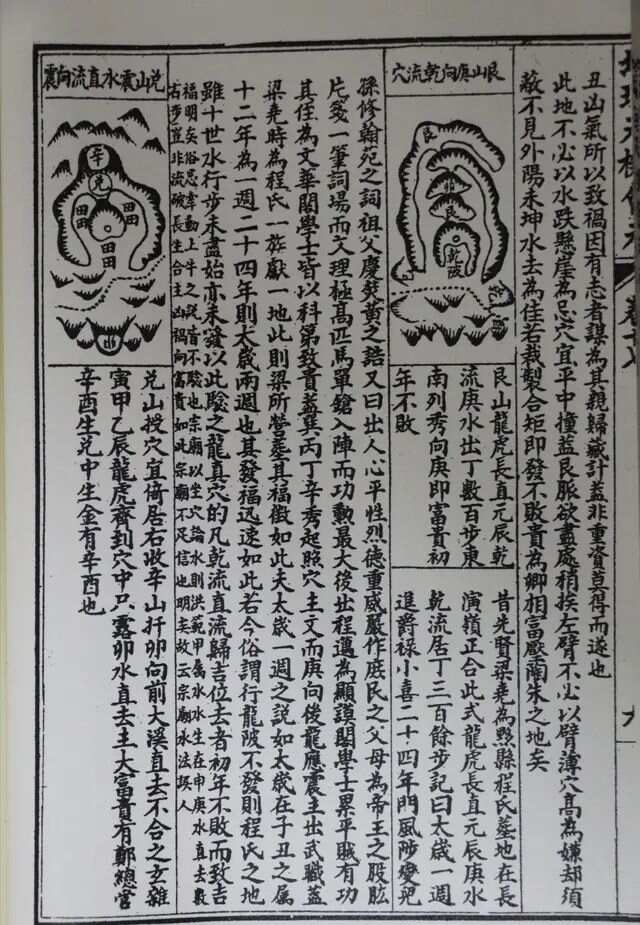 丑山氣所以致禍因有志者謀為其親歸藏計蓋非重資莫得而遂也
此地不必以水跌懸崖為忌穴宜平中撞蓋艮脈欲盡處稍挨左臂不必以臂薄穴高為嫌却須
蔽不見外陽未坤水去為佳若裁製合矩即發不敗貴為卿相富壓蘭朱之地矣
艮山庚向乾流穴
艮
艮
乾陂
艮山龍虎長直元辰乾
流庚水出丁數百步東
南列秀向庚即富貴初
年不敗
昔先賢梁堯為黟縣程氏墓地在長
演嶺正合此式龍虎長直元辰庚水
乾流居丁三百餘步記曰太歲一週
進爵祿小喜二十四年門風陟變兒
孫修翰苑之詞祖父慶焚黃之誥又曰出人心平性烈德重威嚴作庶民之父母為帝王之股肱
片箋一筆詞場而文理極高匹馬單鎗入陣而功勳最大後出程邁為顯謨閣學士累平賊有功
其任為文華閣學士皆以科第致貴蓋巽丙丁辛秀起照穴主文而庚向後龍應震主出武職蓋
梁堯時為程氏一族獻一地此則梁所營墓其福徵如此夫太歲一週之説如太歲在子丑之属
十二年為一週二十四年則太歲兩週也其發福迅速如此若今俗謂行龍陂不發則程氏之地
雖十世水行步未盡始亦未發以此驗之龍真穴的凡乾流直流歸吉位去者初年不敗而致吉
福明矣俗忌牽動土牛之説皆不驗也宗廟以坐穴論水則洪範甲屬水水生在申庚水直去數
百步豈非流破長生合主凶禍向富貴如此宗廟不足信也明矣故云宗廟水法誤人
兌山震水直流向震
辛
兌
田田
田田
田田
兌山授穴宜倚居右收辛山扦卯向前大溪直去不合之玄雖
寅甲乙辰龍虎齊到穴中只露卯水直去主大富貴有鄭總管
辛酉生兌中生金有辛酉也
九